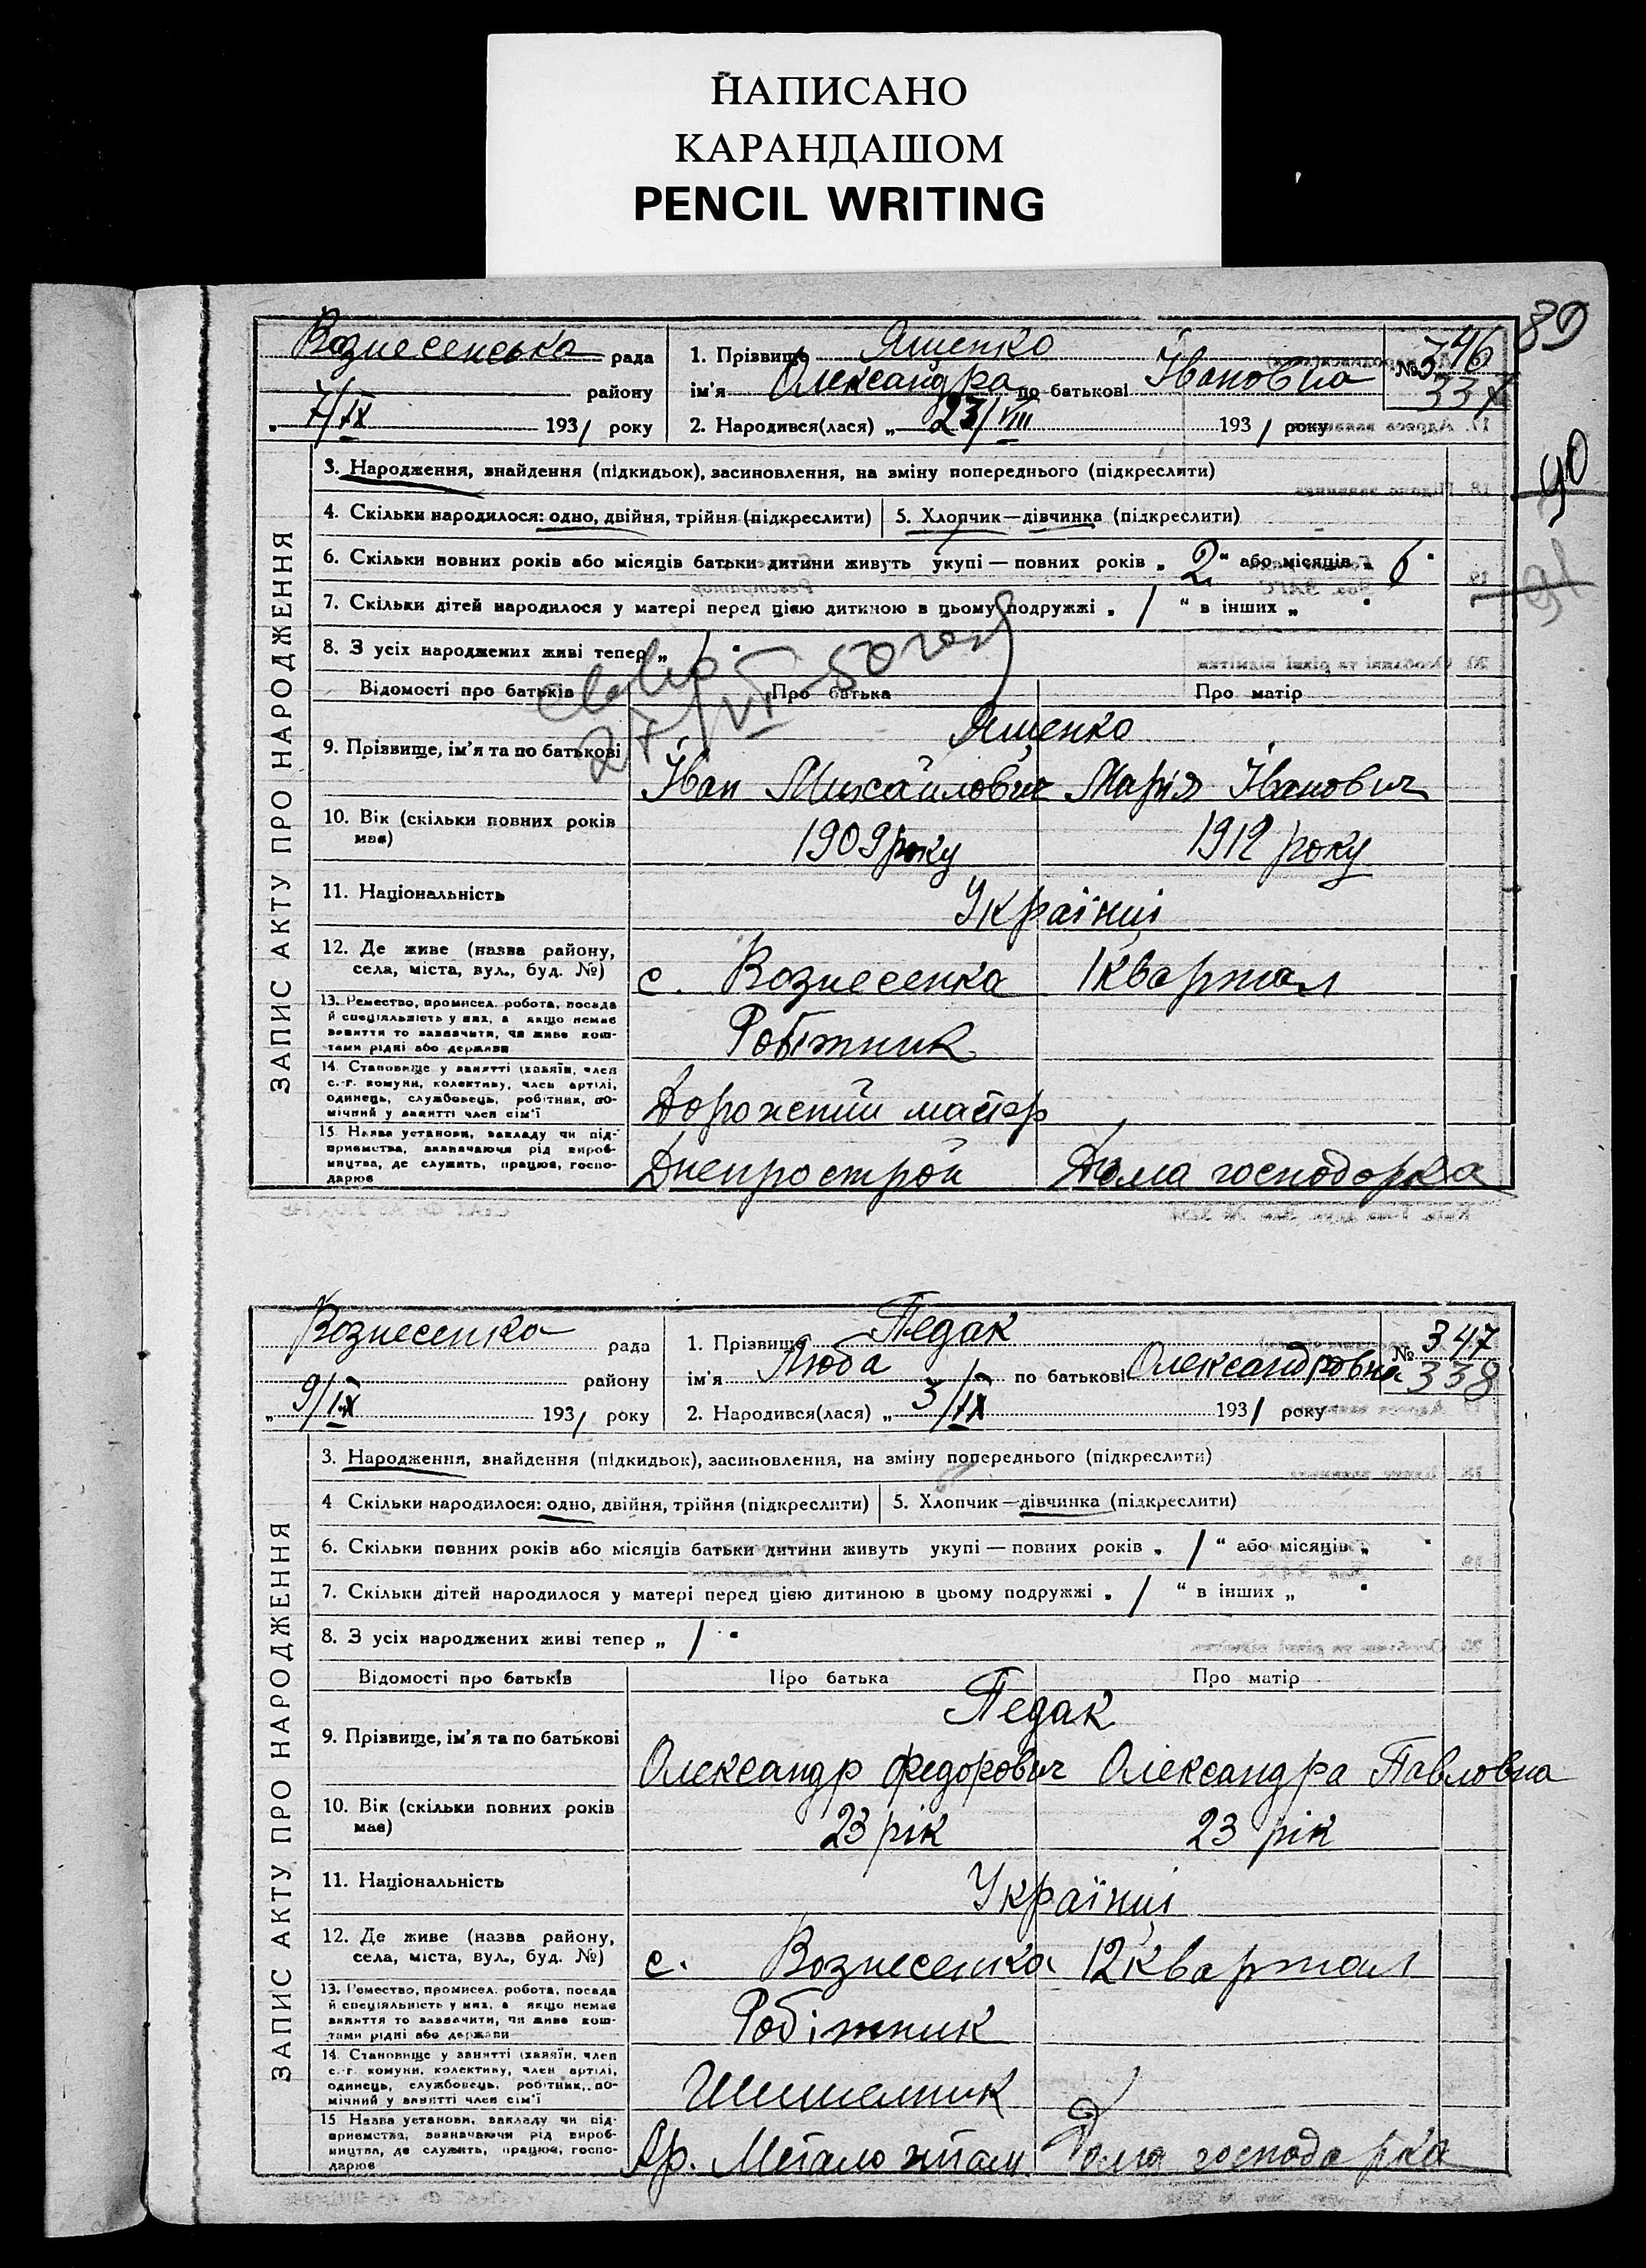 НАПИСАНО
КАРАНДАШОМ
PENCIL WRITING
89
90
91
ЗАПИС АКТУ ПРО НАРОДЖЕННЯ
Вознесенська рада
району
„ 7/IX 1931 року
1. Прізвище Ященко
ім'я Олександра по батькові Івановна
2. Народився(лася) „ 23/VIII 1931 року
№ 346
337
3. Народження, знайдення (підкидьок), засиновлення, на зміну попереднього (підкреслити)
4. Скільки народилося: одно, двійня, трійня (підкреслити) 5. Хлопчик—дівчинка (підкреслити)
6. Скільки повних років або місяців батьки дитини живуть укупі — повних років „ 2 “ або місяців „ 6 “
7. Скільки дітей народилося у матері перед цією дитиною в цьому подружжі „ 1 “ в інших „ “
8. З усіх народжених живі тепер „ 1 “
27/VI 50 года
Відомості про батьків Про батька Про матір
9. Прізвище, ім'я та по батькові
Ященко
Іван Михайлович Марія Іванович
10. Вік (скільки повних років має)
1909 року 1912 року
11. Національність
Українці
12. Де живе (назва району,
села, міста, вул., буд. №)
с. Вознесенка 1 квартал
13. Ремество, промисел, робота, посада
й спеціяльність у них, а якщо немає
заняття то зазначити, чи живе кош-
тами рідні або держави
Робітник
14. Становище у занятті (хазяїн, член
с.-г. комуни, колективу, член артілі,
одинець, службовець, робітник, по-
мічний у занятті член сім'ї
Дорожений майстр
15. Назва установи, закладу чи під-
приємства, зазначаючи рід вироб-
ництва, де служить, працює, госпо-
дарює
Днепрострой Дома господорка
ЗАПИС АКТУ ПРО НАРОДЖЕННЯ
Вознесенко рада
району
„ 9/IX 1931 року
1. Прізвище Педак
ім'я Люба по батькові Олександровна
2. Народився(лася) „ 3/IX 1931 року
№ 347
338
3. Народження, знайдення (підкидьок), засиновлення, на зміну попереднього (підкреслити)
4 Скільки народилося: одно, двійня, трійня (підкреслити) 5. Хлопчик—дівчинка (підкреслити)
6. Скільки повних років або місяців батьки дитини живуть укупі — повних років „ 1 “ або місяців „ “
7. Скільки дітей народилося у матері перед цією дитиною в цьому подружжі „ 1 “ в інших „ “
8. З усіх народжених живі тепер „ 1 “
Відомості про батьків Про батька Про матір
9. Прізвище, ім'я та по батькові
Педак
Олександр Федорович Олександра Павловна
10. Вік (скільки повних років має)
23 рік 23 рік
11. Національність
Українці
12. Де живе (назва району,
села, міста, вул., буд. №)
с. Вознесенка 12 квартал
13. Ремество, промисел, робота, посада
й спеціяльність у них, а якщо немає
заняття то зазначити, чи живе кош-
тами рідні або держави
Робітник
14. Становище у занятті (хазяїн, член
с.-г. комуни, колективу, член артілі,
одинець, службовець, робітник, по-
мічний у занятті член сім'ї
Шишелник
15 Назва установи, закладу чи під-
приємства, зазначаючи рід вироб-
ництва, де служить, працює, госпо-
дарює
Ар. Метало штам Дома господарка